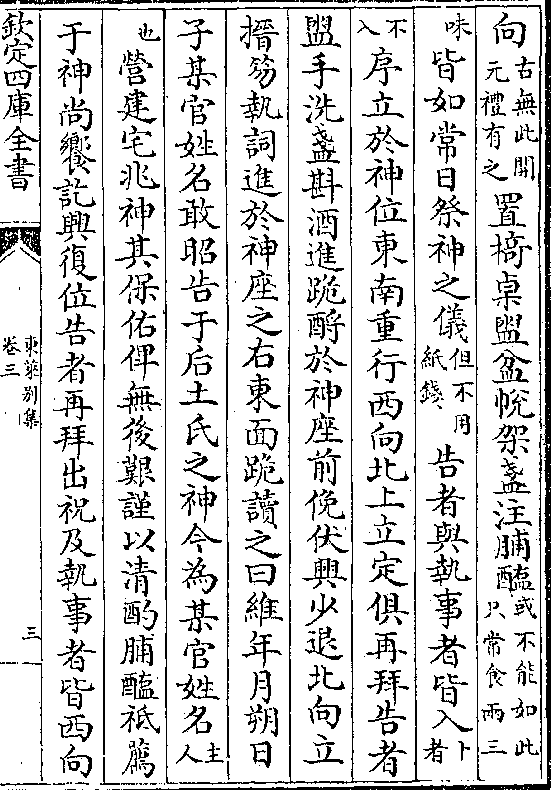 向古無此開元禮有之置椅桌盥盆帨架盞注脯醢或不能如此只常食兩三
味皆如常日祭神之儀但不用紙錢告者與執事者皆入卜者
不入序立於神位東南重行西向北上立定俱再拜告者
盥手洗盞斟酒進跪酹於神座前俛伏興少退北向立
搢笏執詞進於神座之右東面跪讀之曰維年月朔日
子某官姓名敢昭告于后土氏之神今為某官姓名主人
也營建宅兆神其保佑俾無後艱謹以清酌脯醢祗薦
于神尚饗訖興復位告者再拜出祝及執事者皆西向
欽定四庫全書
東萊別集
卷三
三